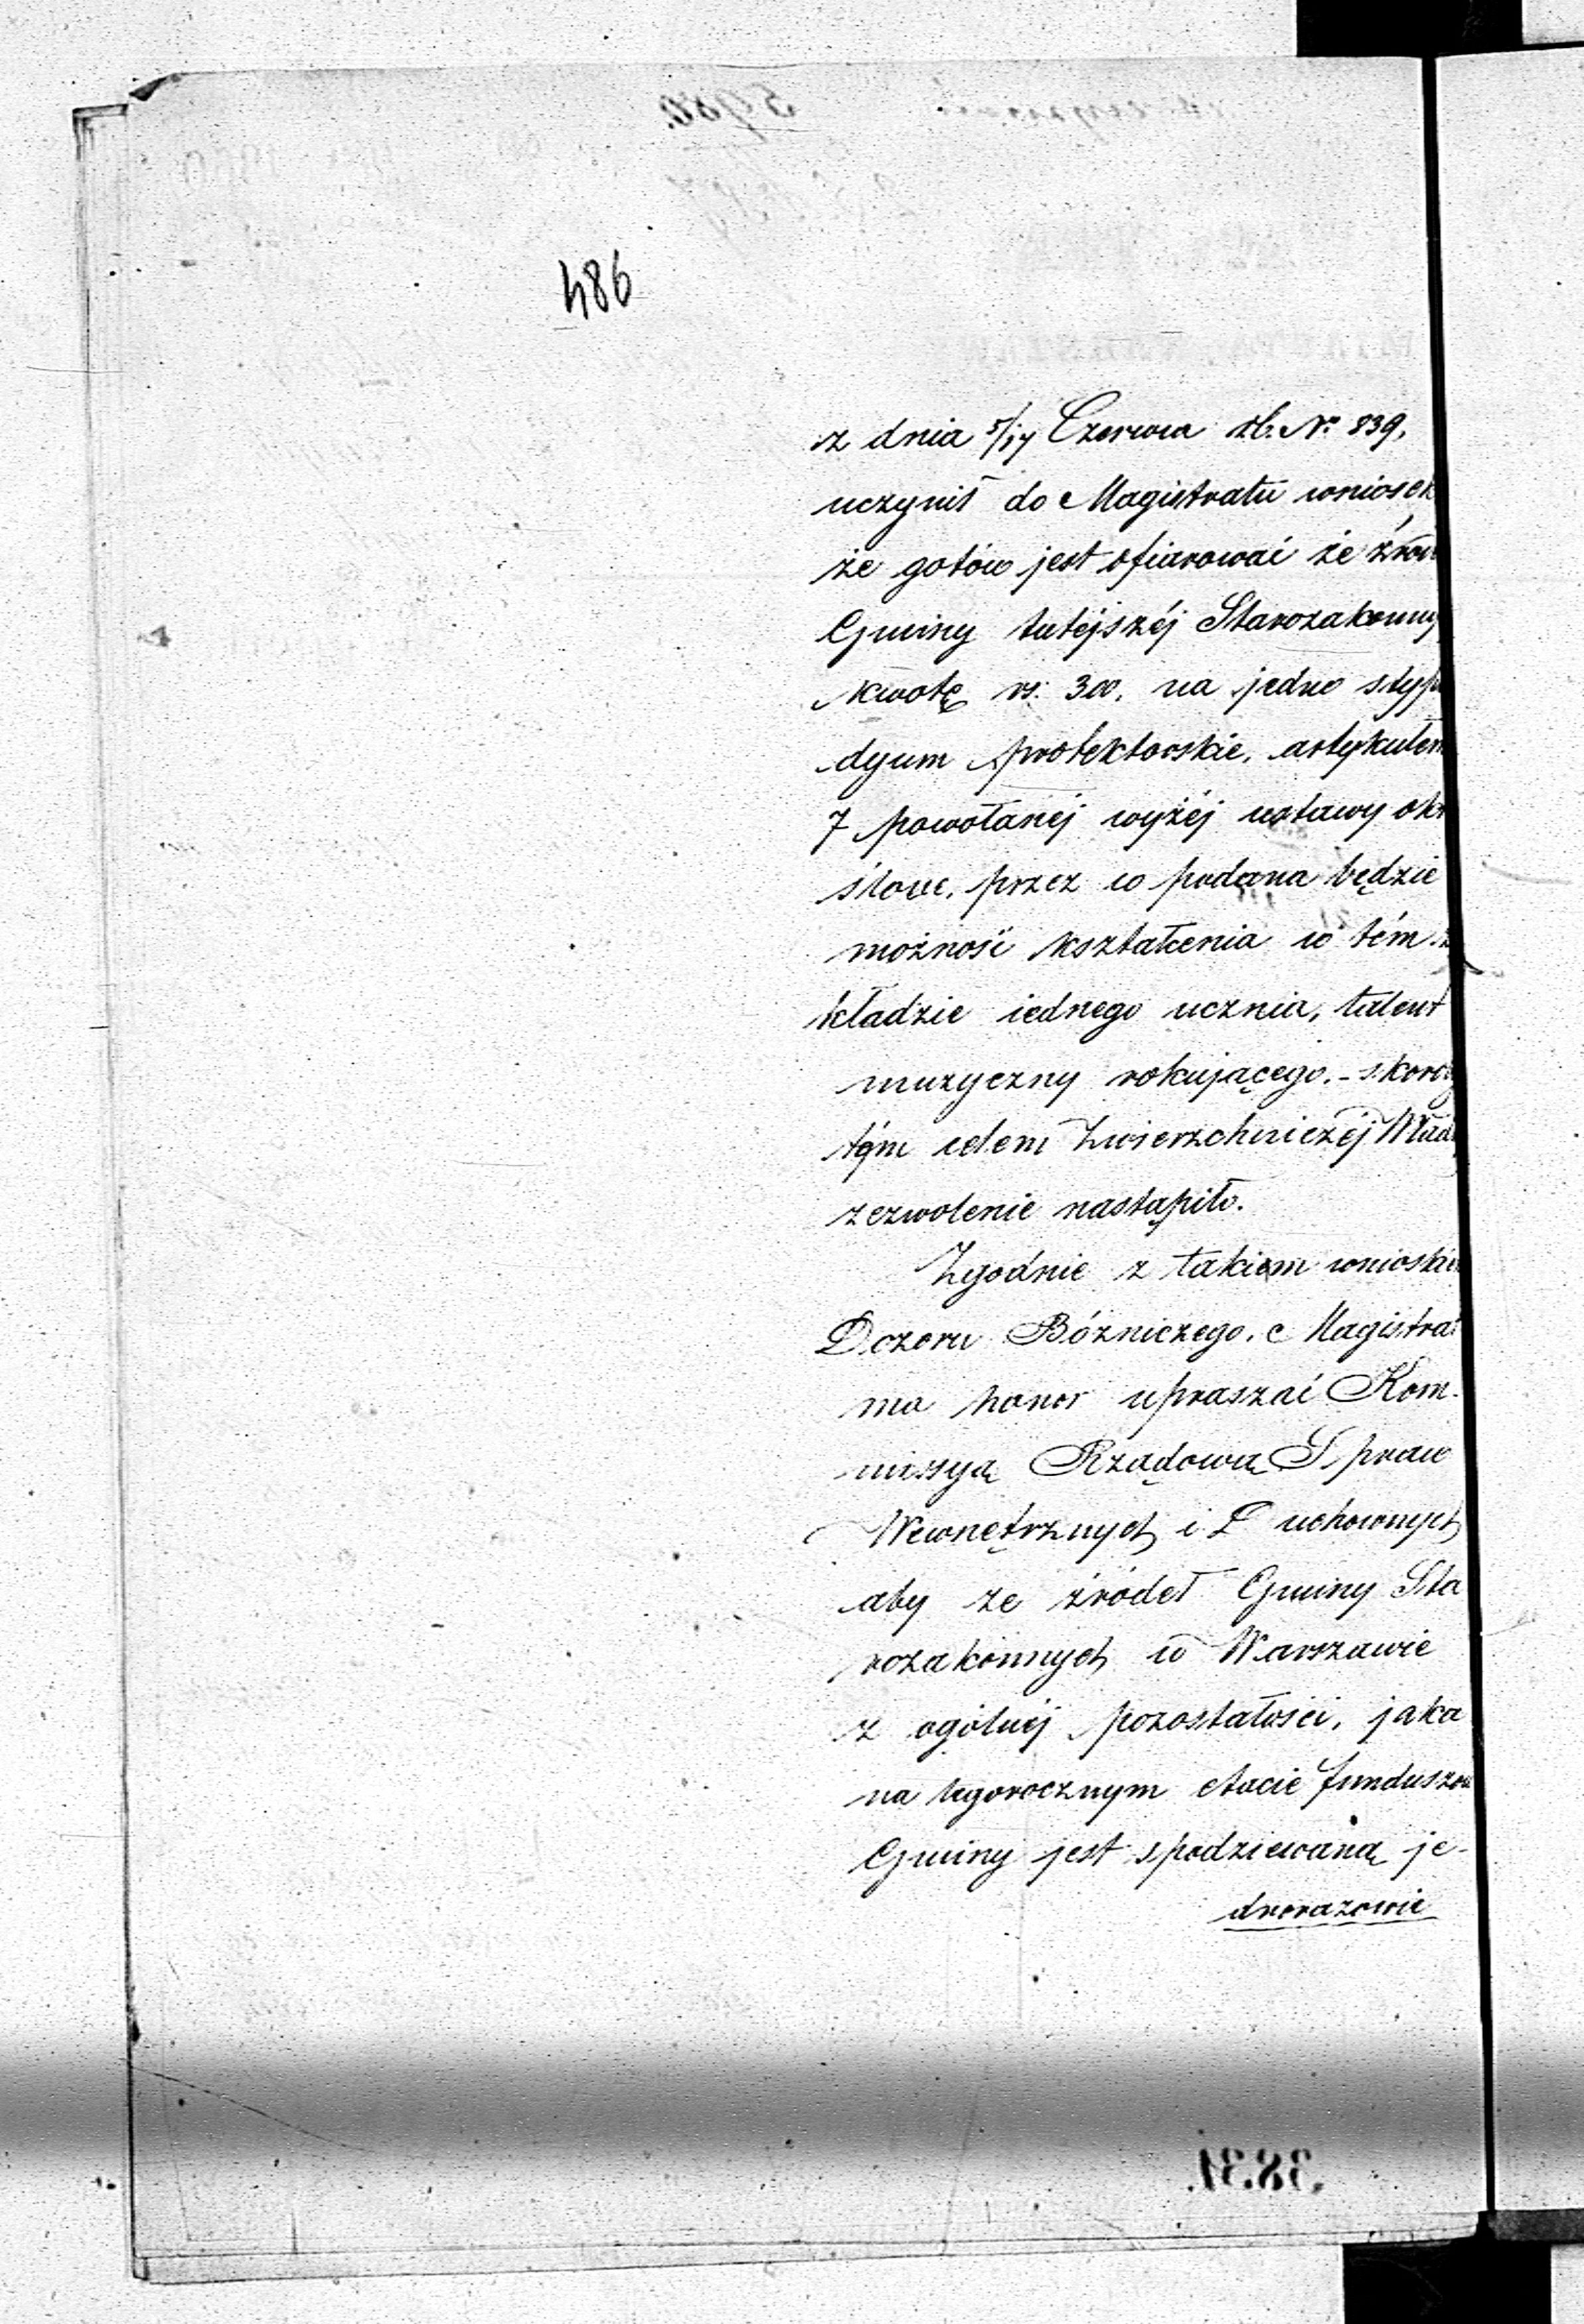 486
z dnia 5/17 Czerwca rb. No 839,
uczynił do Magistratu wniosek
że gotów jest ofiarować ze źród
Gminy tutéjszéj Starozakonny
kwotę rs. 300, na jedno styp
dyum protektorskie, artykułem
7 powołanéj wyżéj ustawy okr
ślone, przez co podana będzie
możność kształcenia w tém z
kładzie iednego ucznia, talent
muzyczny rokującego. - skoro
tym celem Zwierzchniczéj Wład
zezwolenie nastąpiło.
Zgodnie z takiem wnioskie
Dozoru Bózniczego, Magistrat
ma honor upraszać Kom-
missyą Rządową Spraw
Wewnętrznych i Duchownych
aby ze źródeł Gminy Sta
rozakonnych w Warszawie
z ogólnéj pozostałości, jaka
na tegorocznym etacie funduszów
Gminy jest spodziewaną je-
dnorazowie
3831.